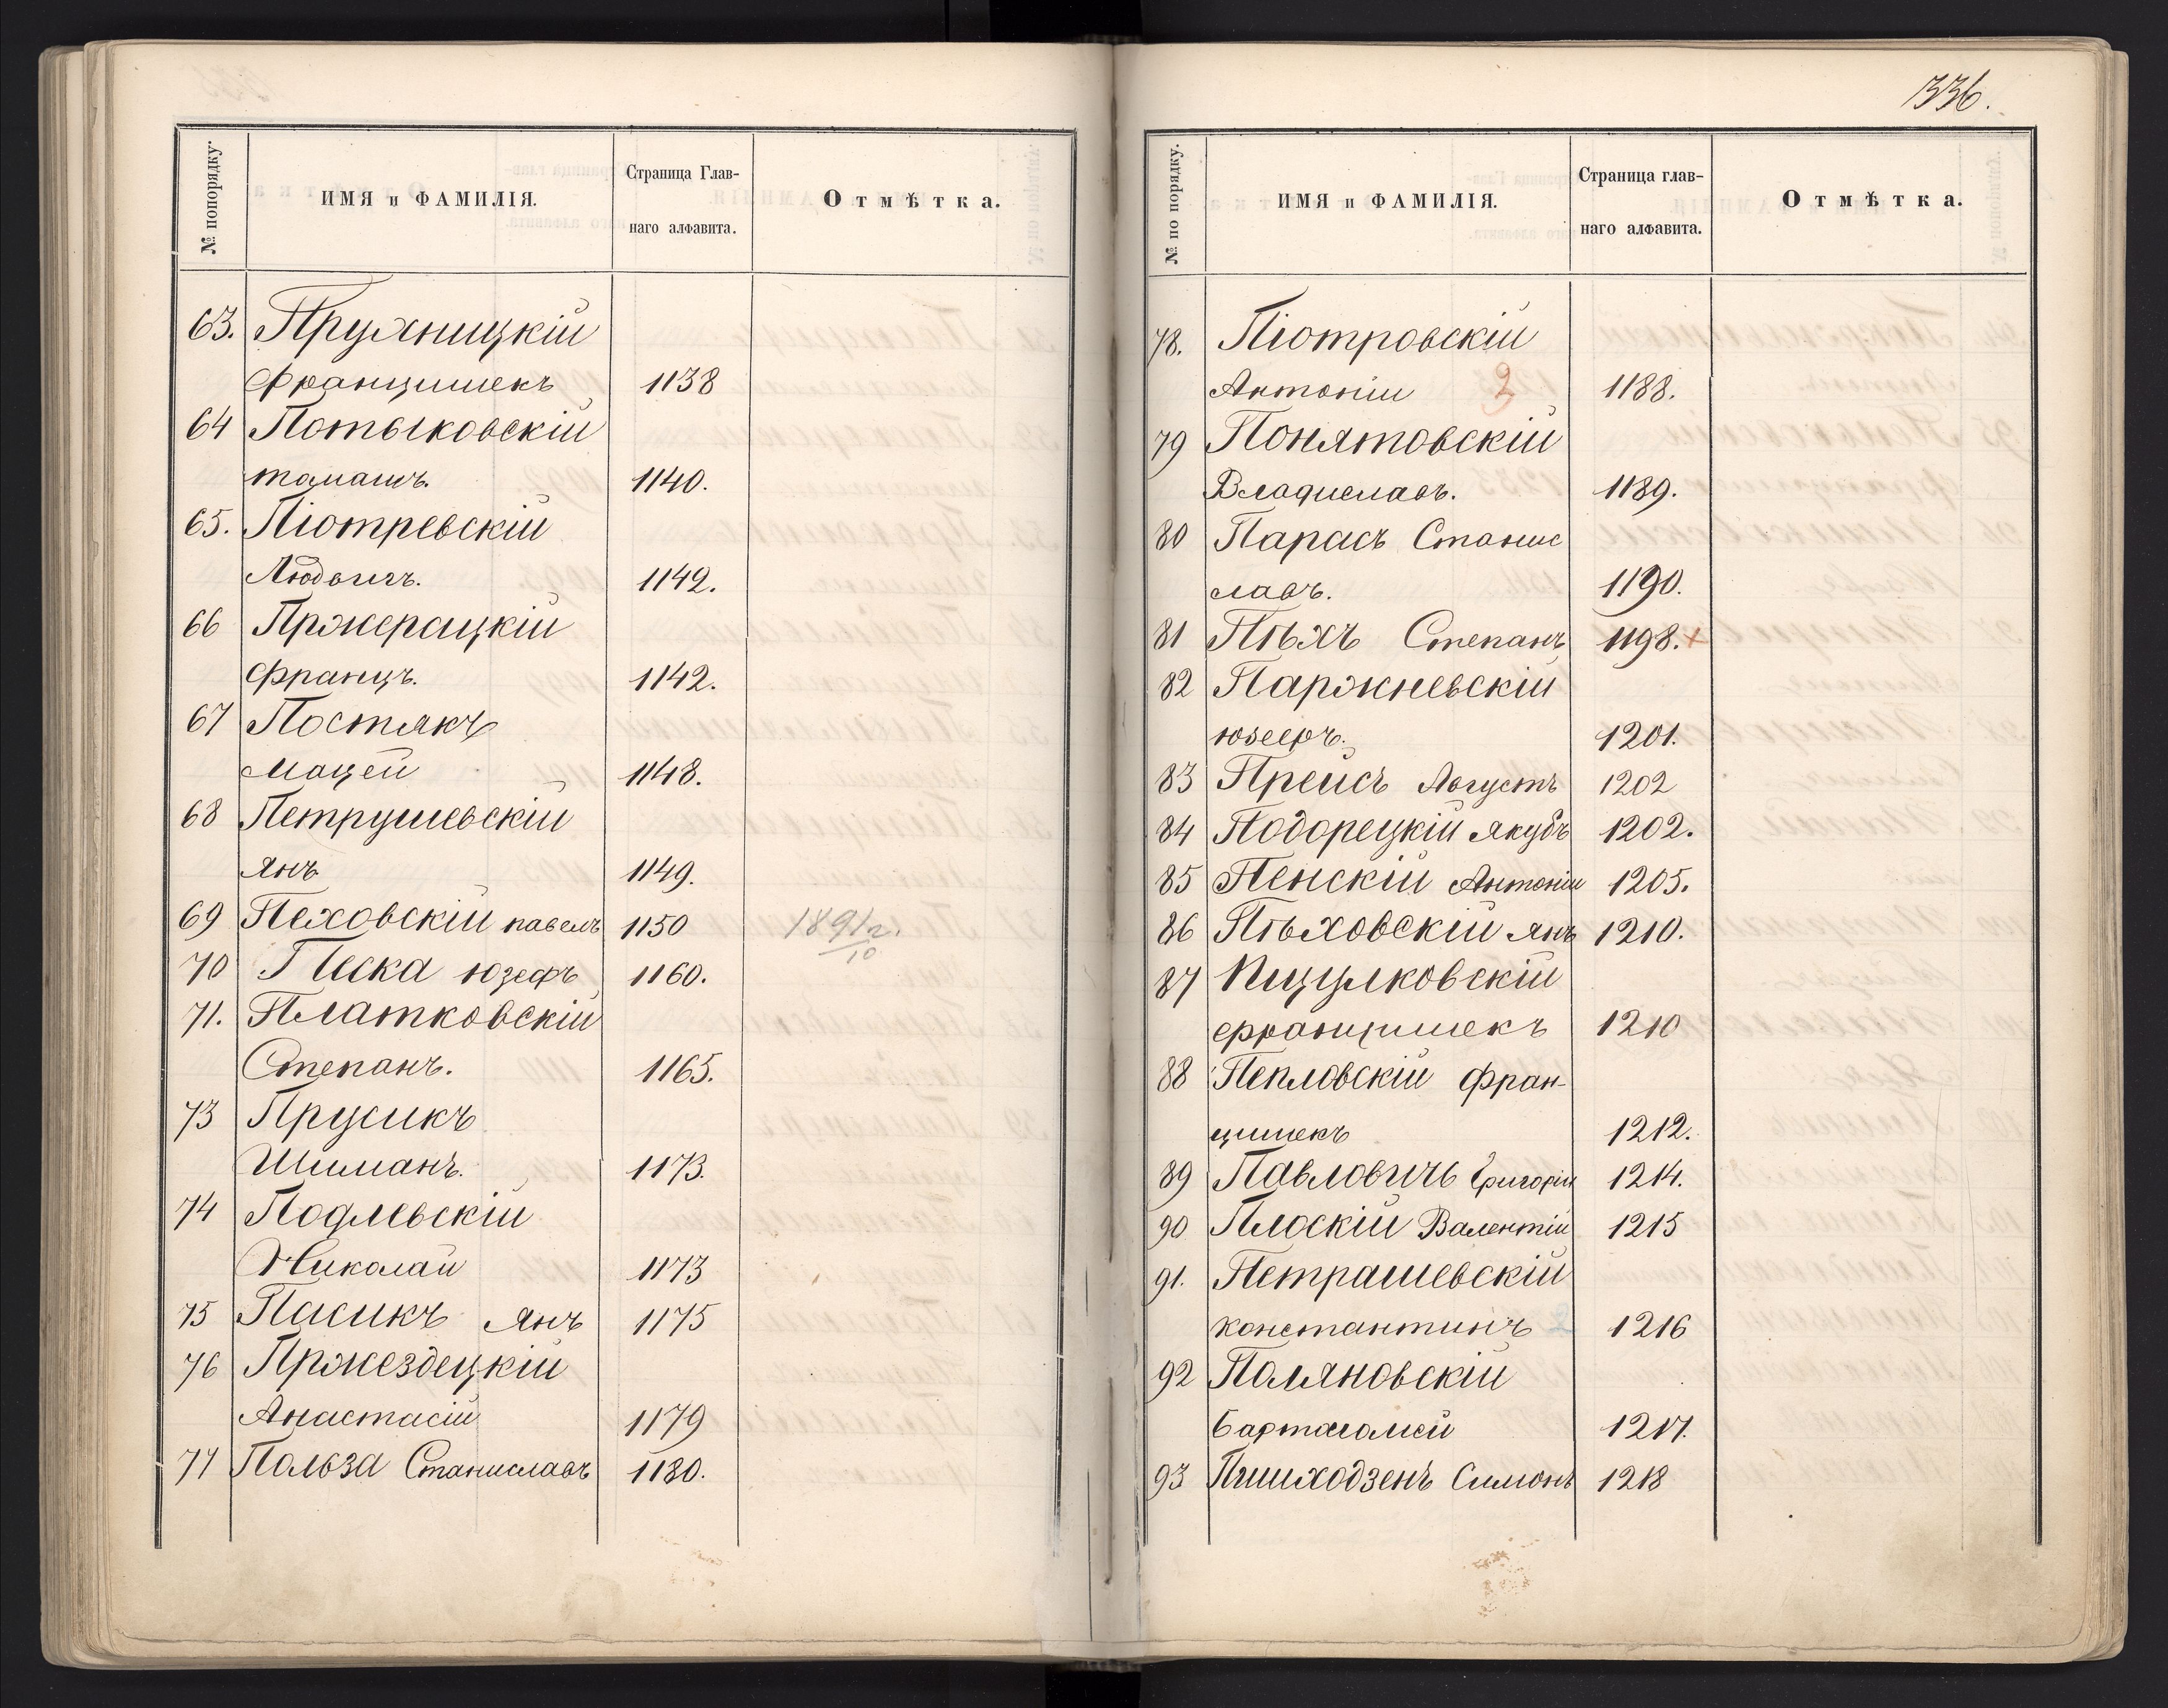 № попорядку.
ИМЯ и ФАМИЛІЯ.
Страница Глав-
наго алфавита.
Отмѣтка.
63. Пружницкій
Францишекъ 1138
64 Потыковскій
томашъ. 1140.
65. Піотревскій
Людвигъ. 1142.
66 Пржерацкій
Францъ. 1142.
67 Постякъ
Мацей 1148.
68 Петрушевскій
янъ 1149.
69 Пеховскій павелъ 1150 1891 г.
10
70 Песка юзефъ 1160.
71. Платковскій
Степанъ. 1165.
73 Прусикъ
Шиманъ. 1173.
74 Подлевскій
Николай 1173
75 Пасикъ янъ 1175
76 Пржездецкій
Анастасій 1179
77 Польза Станиславъ 1180.
336.
№ по порядку.
ИМЯ и ФАМИЛІЯ.
Страница глав-
наго алфавита.
Отмѣтка.
78. Піотровскій
Антоній 2 1188.
79 Понятовскій
Владиславъ. 1189.
80 Парасъ Станис
лавъ. 1190.
81 Пѣхъ Степанъ 1198. +
82 Паржневскій
юзефъ. 1201.
83 Прейсъ Августъ 1202
84 Подорецкій якубъ 1202.
85 Пенскій Антоній 1205.
86 Пѣховскій янъ 1210.
87
францишекъ 1210
88 Пепловскій Фран-
цишекъ 1212.
89 Павловичъ Григорій 1214.
90 Плоскій Валентій 1215
91. Петрашевскій
константинъ 2 1216
92 Поляновскій
бартоломей 1217.
93 Пшиходзенъ Симонъ 1218